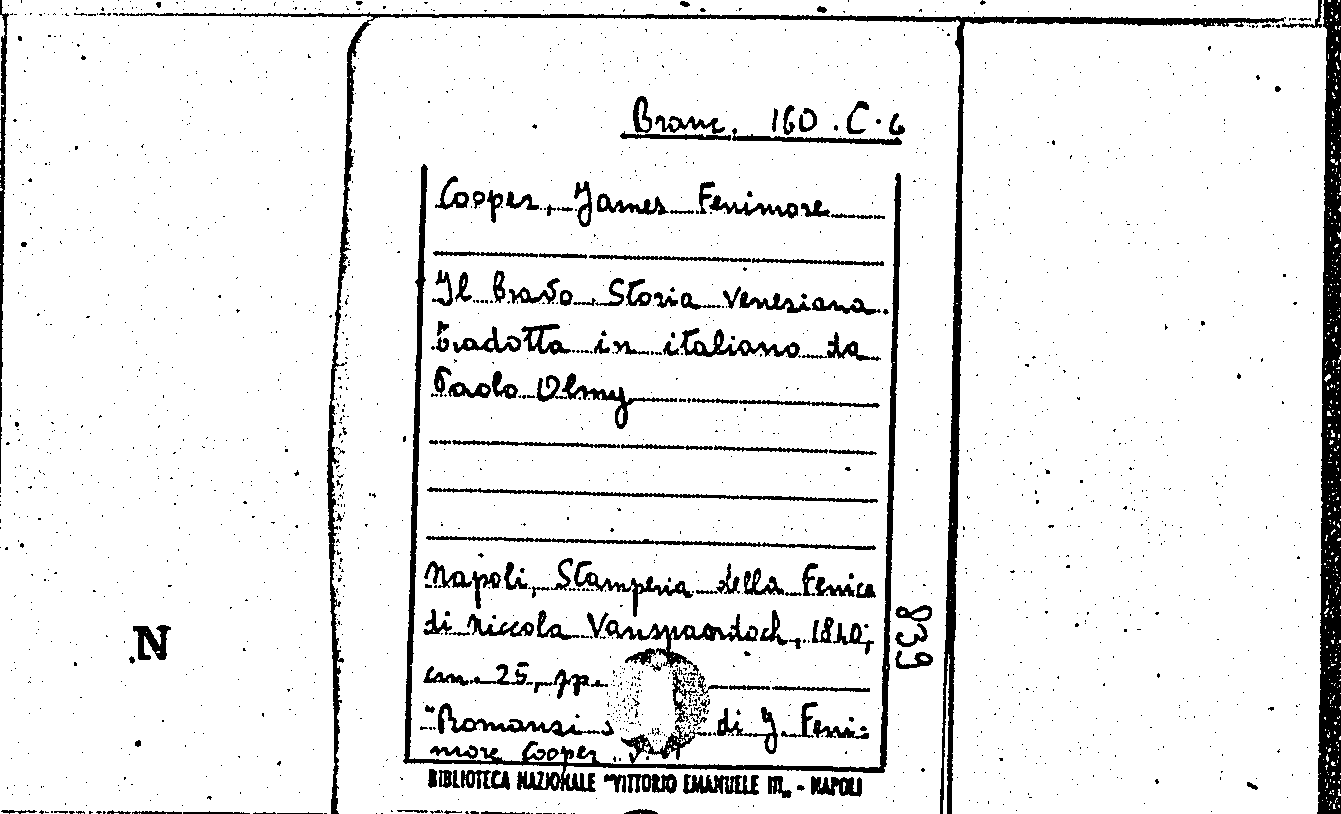 Branc. 160.C.6
Cooper, James Fenimore
Il bravo. Storia veneziana.
tradotta in italiano da
Paolo Olmy
Napoli, Stamperia della Fenice
di Niccola Vanspaendoch, 1840;
cm. 25, pp.
"Romanzi di J. Feni=
more Cooper
839
N
BIBLIOTECA NAZIONALE "VITTORIO EMANUELE III„ - NAPOLI